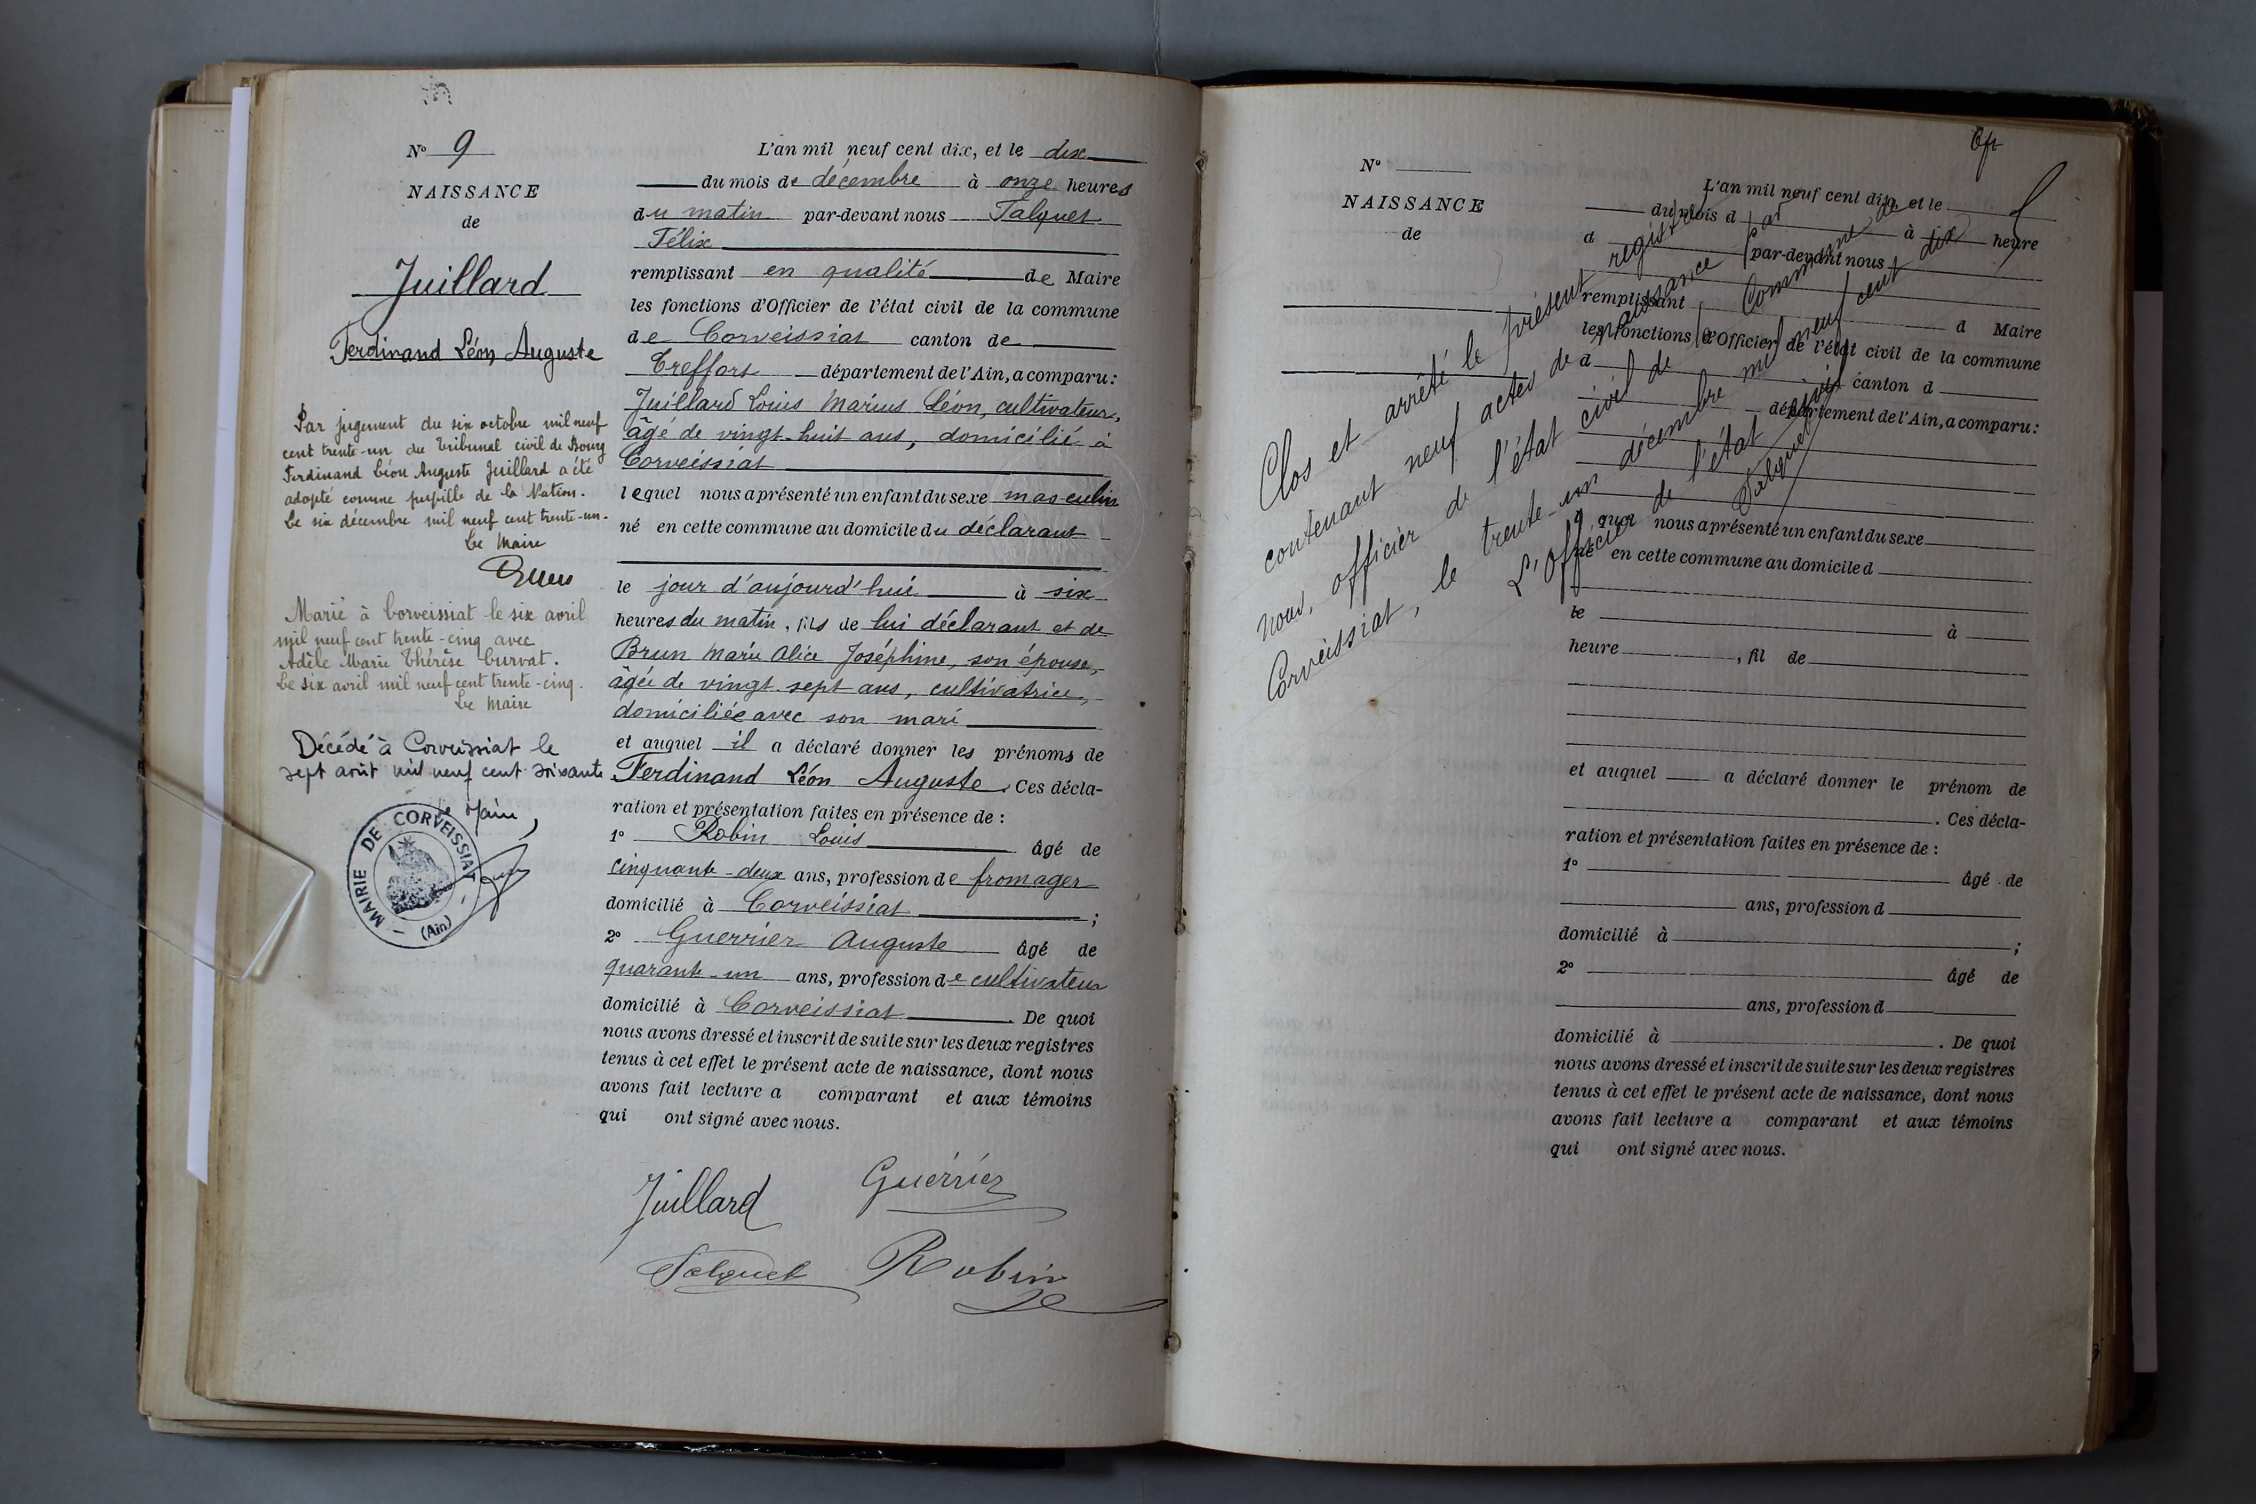 Nº 9
NAISSANCE
de
Juillard
Ferdinand Léon Auguste
Par jugement du six octobre mil neuf
cent trente-un du Tribunal civil de Bourg
Ferdinand Léon Auguste Juillard a été
adopté comme pupille de la Nation.
Le six décembre mil neuf cent trente-un.
Le Maire
Marié à Corveissiat le six avril
mil neuf cent trente-cinq avec
Adèle Marie Thérèse Curvat.
Le six avril mil neuf cent trente-cinq.
Le Maire
Décédé à Corveissiat le
sept août mil neuf cent soixante
Le Maire,
MAIRIE DE CORVEISSIAT
(Ain)
L'an mil neuf cent dix, et le dix
du mois de décembre à onze heures
du matin par-devant nous Falquet
Félix
remplissant en qualité de Maire
les fonctions d'Officier de l'état civil de la commune
de Corveissiat canton de
Treffort département de l'Ain, a comparu :
Juillard Louis Marius Léon, cultivateur,
âgé de vingt-huit ans, domicilié à
Corveissiat
lequel nous a présenté un enfant du sexe masculin
né en cette commune au domicile du déclarant
le jour d'aujourd'hui à six
heures du matin, fils de lui déclarant et de
Brun Marie Alice Joséphine, son épouse,
âgée de vingt-sept ans, cultivatrice,
domiciliée avec son mari
et auquel il a déclaré donner les prénoms de
Ferdinand Léon Auguste. Ces décla-
ration et présentation faites en présence de :
1º Robin Louis âgé de
cinquante-deux ans, profession de fromager
domicilié à Corveissiat ;
2º Guerrier Auguste âgé de
quarante-un ans, profession de cultivateur
domicilié à Corveissiat. De quoi
nous avons dressé et inscrit de suite sur les deux registres
tenus à cet effet le présent acte de naissance, dont nous
avons fait lecture a comparant et aux témoins
qui ont signé avec nous.
Juillard Guerrier
Falquet Robin
Nº
NAISSANCE
de
L'an mil neuf cent dix, et le
du mois d à heure
d par-devant nous
remplissant d Maire
les fonctions d'Officier de l'état civil de la commune
d canton d
département de l'Ain, a comparu :
quel nous a présenté un enfant du sexe
né en cette commune au domicile d
le à
heure , fil de
et auquel a déclaré donner le prénom de
. Ces décla-
ration et présentation faites en présence de :
1º âgé de
ans, profession d
domicilié à ;
2º âgé de
ans, profession d
domicilié à . De quoi
nous avons dressé et inscrit de suite sur les deux registres
tenus à cet effet le présent acte de naissance, dont nous
avons fait lecture a comparant et aux témoins
qui ont signé avec nous.
Clos et arrêté le présent registre
contenant neuf actes de naissance par
nous, officier de l'état civil de la Commune de
Corveissiat, le trente-un décembre mil neuf cent dix
L'Officier de l'état civil
Falquet